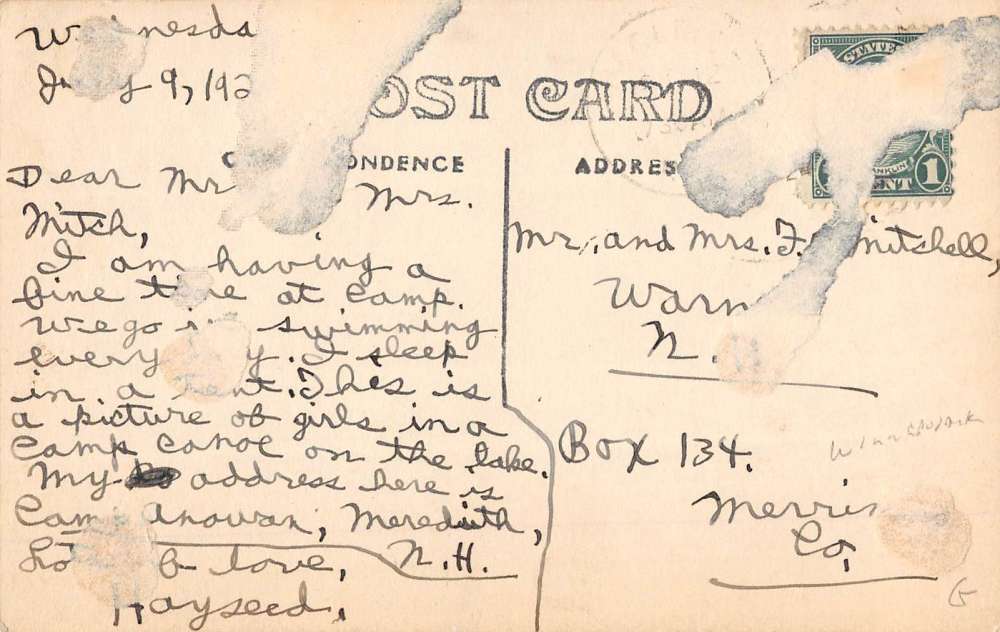 July 9, 192
POST CARD
CORRESPONDENCE
ADDRES
STATE
FRANKLIN
1 CENT 1
Dear Mr
Mrs.
Mitch,
I am having a
fine time at Camp.
we go in swimming
every day. I sleep
in a tent. This is
a picture of girls in a
Camp Canoe on the lake.
My address here is
Camp Anowan, Meredith,
N.H.
Lots of love,
Hayseed.
Mr. and Mrs. F. Mitshell,
Warn
N.
Box 134.
Merri
Co,